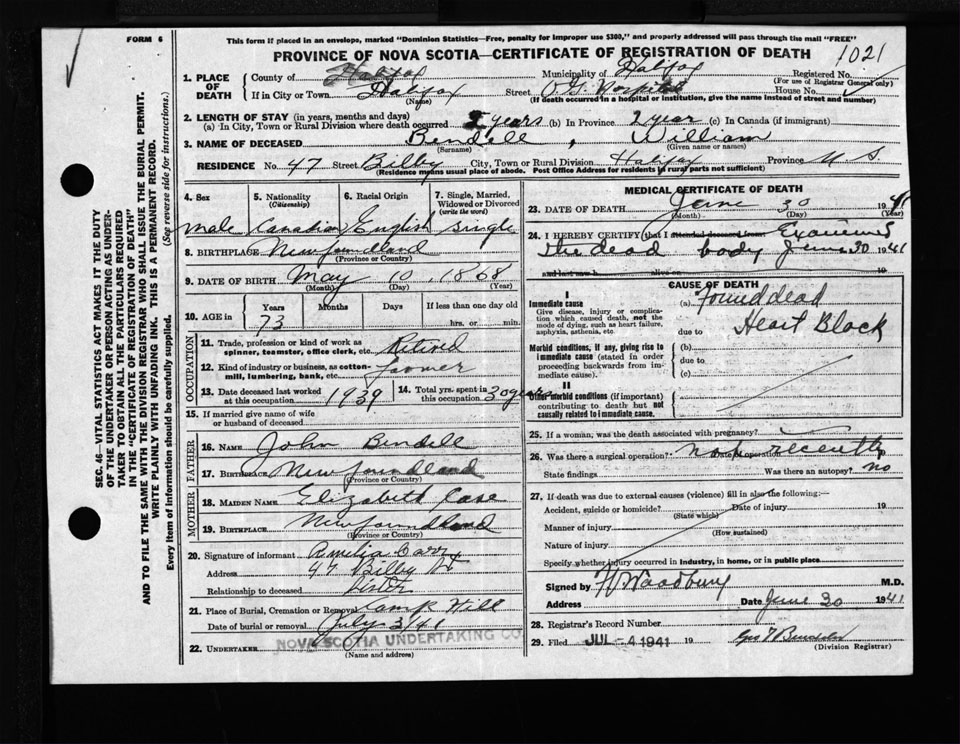 FORM 6
This form if placed in an envelope, marked "Dominion Statistics—Free, penalty for improper use $300," and properly addressed will pass through the mail "FREE"
PROVINCE OF NOVA SCOTIA—CERTIFICATE OF REGISTRATION OF DEATH
1021
1. PLACE OF DEATH County of Halifax Municipality of Halifax Registered No.
(For use of Registrar General only)
If in City or Town Halifax (Name) Street Hospital House No.
(If death occurred in a hospital or institution, give the name instead of street and number)
2. LENGTH OF STAY (in years, months and days)
(a) In City, Town or Rural Division where death occurred 2 years (b) In Province 2 year (c) In Canada (if immigrant)
3. NAME OF DECEASED Bendell, William
(Surname) (Given name or names)
RESIDENCE No. 47 Street Bilby City, Town or Rural Division Halifax Province N. S.
(Residence means usual place of abode. Post Office Address for residents in rural parts not sufficient)
4. Sex
male
5. Nationality (Citizenship)
Canadian
6. Racial Origin
English
7. Single, Married, Widowed or Divorced (write the word)
Single
8. BIRTHPLACE Newfoundland
(Province or Country)
9. DATE OF BIRTH May 10, 1868
(Month) (Day) (Year)
10. AGE in Years Months Days If less than one day old
73 hrs. or min.
OCCUPATION
11. Trade, profession or kind of work as spinner, teamster, office clerk, etc. Retired
12. Kind of industry or business, as cotton-mill, lumbering, bank, etc.
13. Date deceased last worked at this occupation 1939
14. Total yrs. spent in this occupation 30 years
15. If married give name of wife or husband of deceased
FATHER
16. NAME John Bendell
17. BIRTHPLACE Newfoundland
(Province or Country)
MOTHER
18. MAIDEN NAME Elizabeth Case
19. BIRTHPLACE Newfoundland
(Province or Country)
20. Signature of informant Amelia
Address 47 Bilby St
Relationship to deceased Sister
21. Place of Burial, Cremation or Removal Camp Hill
Date of burial or removal July 3/41
22. UNDERTAKER NOVA SCOTIA UNDERTAKING CO.
(Name and address)
MEDICAL CERTIFICATE OF DEATH
23. DATE OF DEATH June 30 1941
(Month) (Day) (Year)
24. I HEREBY CERTIFY that I attended deceased from Examined
the dead body June 30 1941
and last saw h alive on 19
CAUSE OF DEATH
I
Immediate cause (a) Found dead
Give disease, injury or complication which caused death, not the mode of dying, such as heart failure, asphyxia, asthenia, etc.
due to Heart Block
Morbid conditions, if any, giving rise to immediate cause (stated in order proceeding backwards from immediate cause).
(b)
due to
(c)
II
Other morbid conditions (if important) contributing to death but not causally related to immediate cause.
25. If a woman, was the death associated with pregnancy?
26. Was there a surgical operation? not recently
State findings Was there an autopsy? no
27. If death was due to external causes (violence) fill in also the following:—
Accident, suicide or homicide? Date of injury 19
(State which)
Manner of injury
(How sustained)
Nature of injury
Specify whether injury occurred in industry, in home, or in public place
Signed by H Woodbury M.D.
Address Date June 30 1941
28. Registrar's Record Number
29. Filed JUL -4 1941 19
(Division Registrar)
SEC. 46—VITAL STATISTICS ACT MAKES IT THE DUTY
OF THE UNDERTAKER OR PERSON ACTING AS UNDER-
TAKER TO OBTAIN ALL THE PARTICULARS REQUIRED
IN THE "CERTIFICATE OF REGISTRATION OF DEATH"
AND TO FILE THE SAME WITH THE DIVISION REGISTRAR WHO SHALL ISSUE THE BURIAL PERMIT.
WRITE PLAINLY WITH UNFADING INK. THIS IS A PERMANENT RECORD.
Every item of information should be carefully supplied. (See reverse side for instructions.)